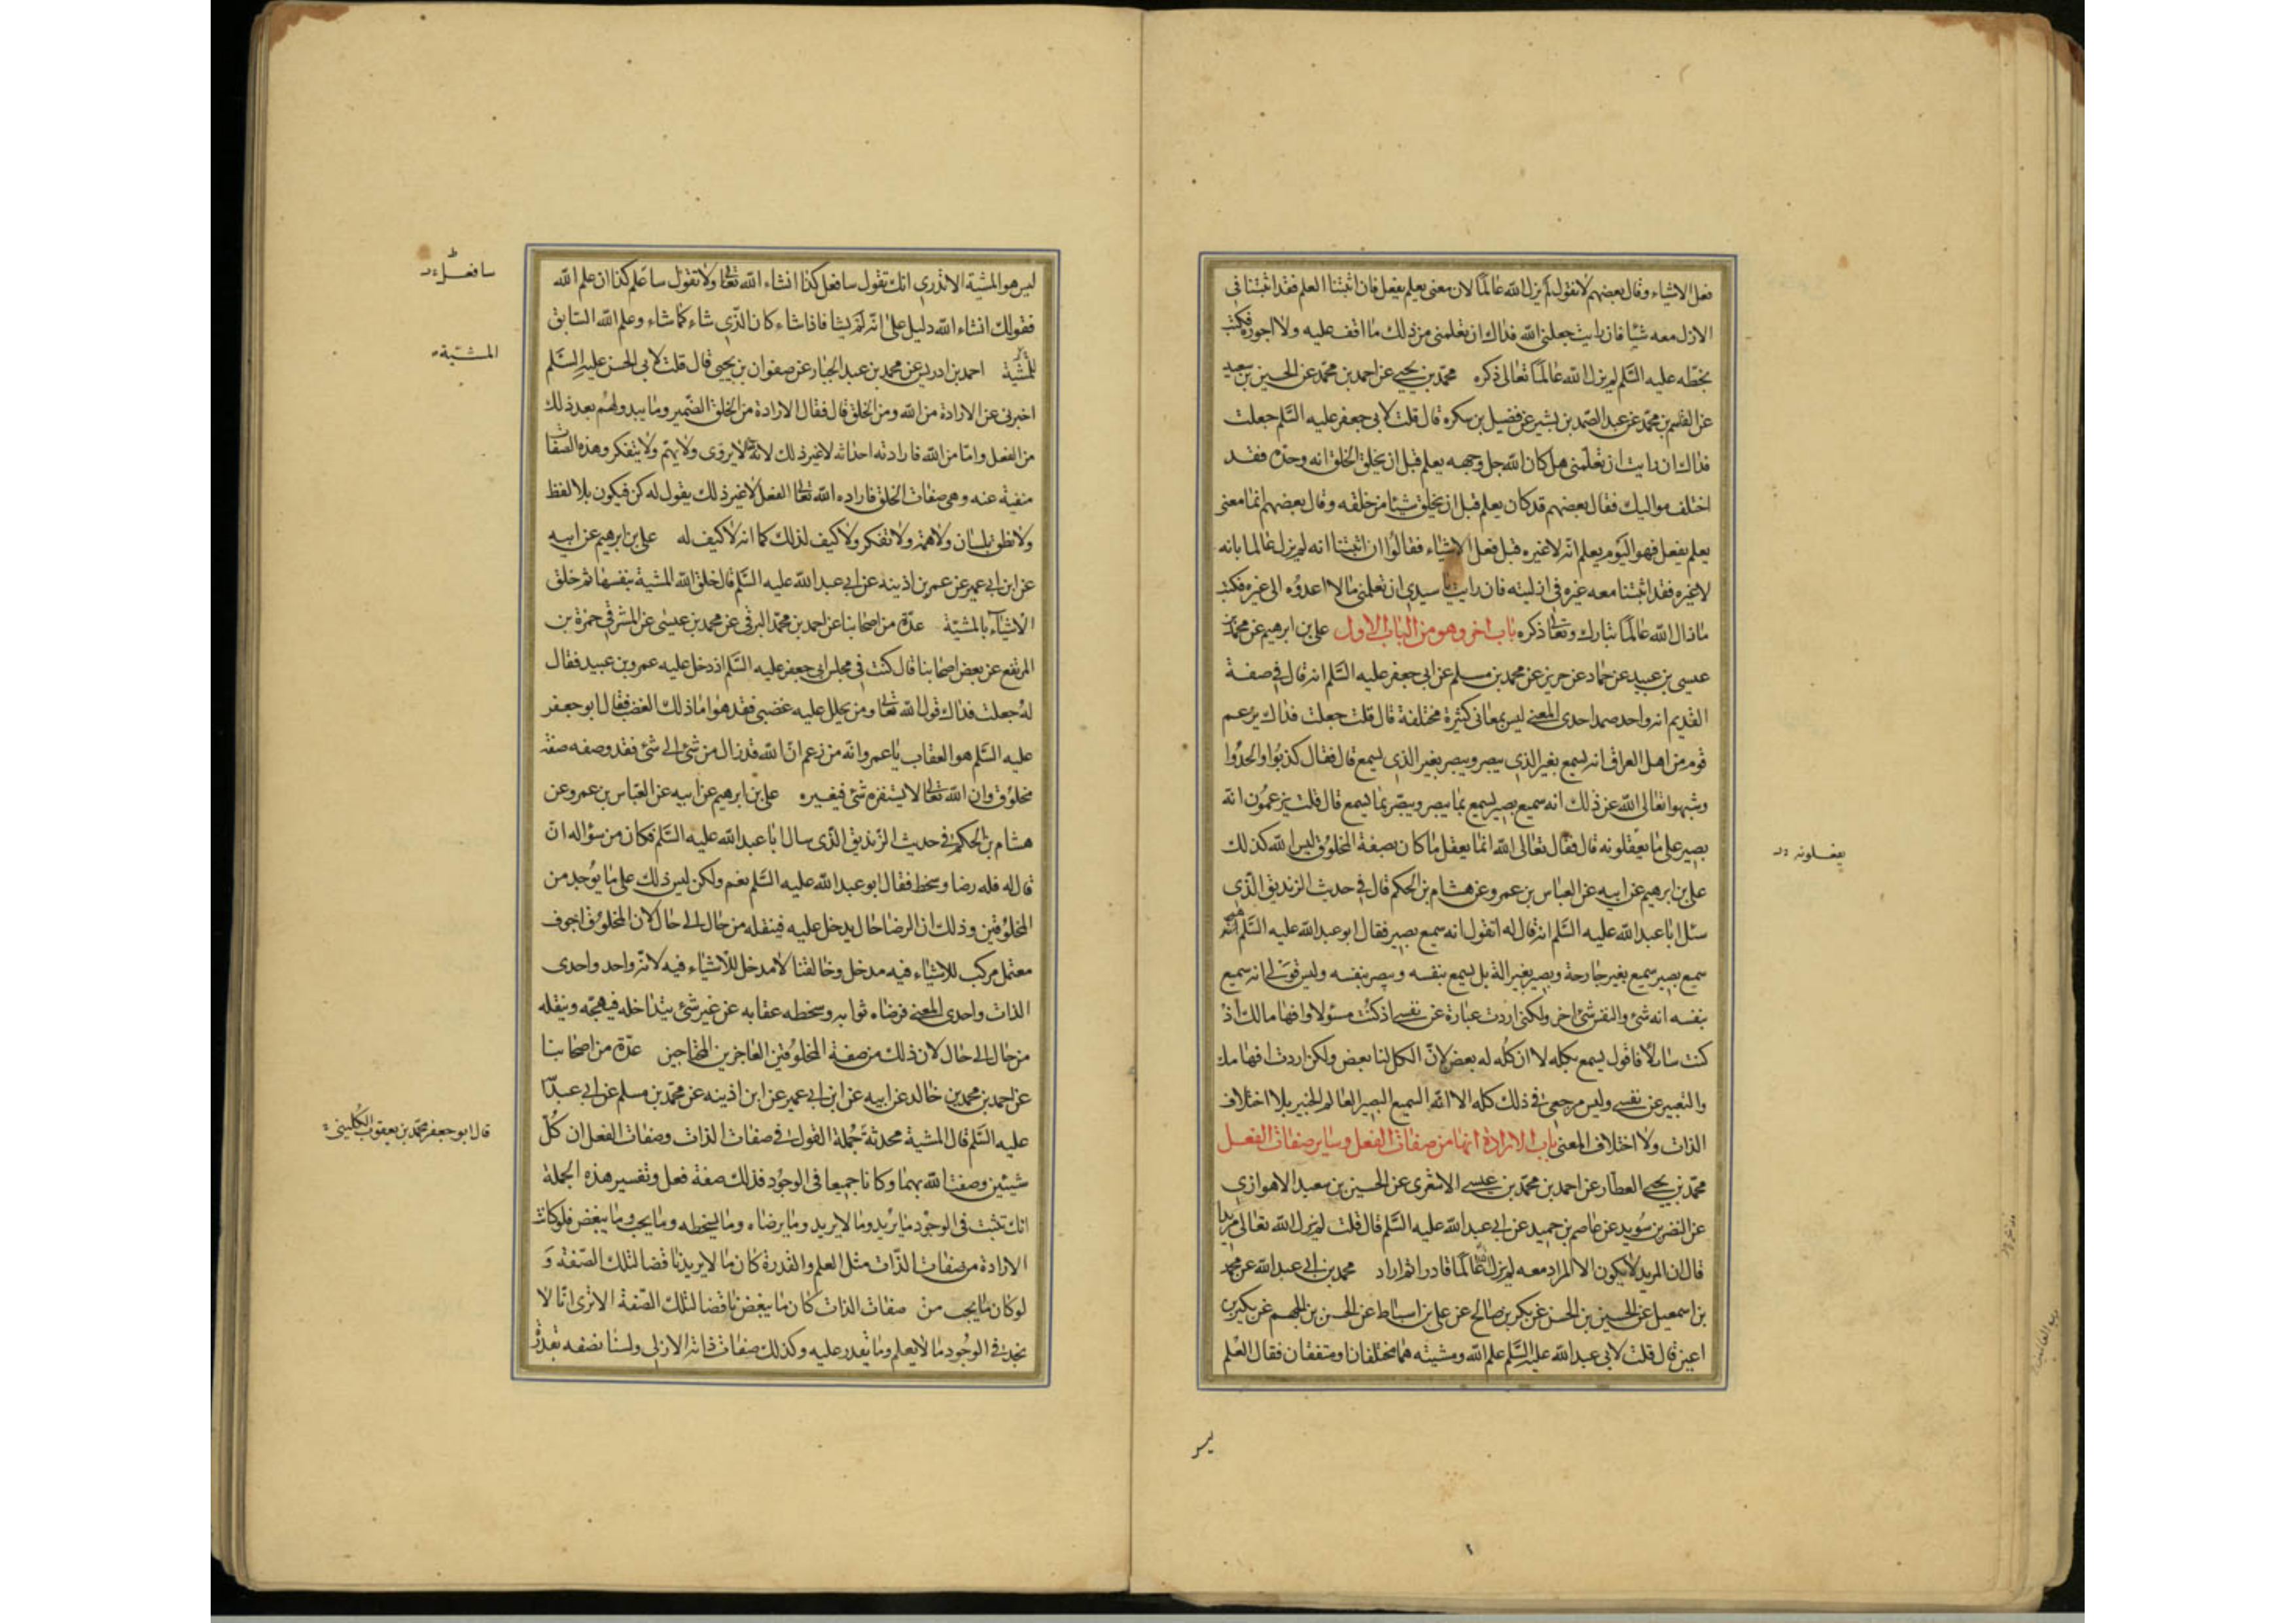 فعل الاشياء وقال بعضهم لانقول لم يزل الله عالما لان معنى يعلم يفعل فان اثبتنا العلم فقد اثبتنا فى
الازل معه شيئا فان رايت جعلنى الله فداك ان تعلمنى من ذلك ما اقف عليه ولا اجوزه فكتب
بخطه عليه السلم لم يزل الله عالما تعالى ذكره محمد بن يحيى عن احمد بن محمد عن الحسين بن سعيد
عن القسم بن محمد عن عبد الصمد بن بشير عن فضيل بن سكره قال قلت لابى جعفر عليه السلم جعلت
فداك ان رايت ان تعلمنى هل كان الله جل وجهه يعلم قبل ان يخلق الخلق انه وحده فقد
اختلف مواليك فقال بعضهم قد كان يعلم قبل ان يخلق شيئا من خلقه وقال بعضهم انما معنى
يعلم يفعل فهو اليوم يعلم انه لا غيره قبل فعل الاشياء فقالوا ان اثبتنا انه لم يزل عالما بانه
لا غيره فقد اثبتنا معه غيره فى ازليته فان رايت يا سيدى ان تعلمنى ما لا اعدوه الى غيره فكتب
مازال الله عالما تبارك وتعالى ذكره باب اخر وهو من الباب الاول على بن ابرهيم عن محمد بن
عيسى بن عبيد عن حماد عن حريز عن محمد بن مسلم عن ابى جعفر عليه السلم انه قال فى صفة
القديم انه واحد صمد احدى المعنى ليس بمعانى كثيرة مختلفة قال قلت جعلت فداك يزعم
قوم من اهل العراق انه يسمع بغير الذى يبصر ويبصر بغير الذى يسمع قال فقال كذبوا والحدوا
وشبهوا تعالى الله عن ذلك انه سميع بصير يسمع بما يبصر ويبصر بما يسمع قال قلت يزعمون انه
بصير على ما يعقلونه قال فقال تعالى الله انما يعقل ما كان بصفة المخلوق ليس الله كذلك
على بن ابرهيم عن ابيه عن العباس بن عمرو عن هشام بن الحكم قال فى حديث الزنديق الذى
سئل ابا عبد الله عليه السلم انه قال له اتقول انه سميع بصير فقال ابو عبد الله عليه السلم
سميع بصير سميع بغير جارحة وبصير بغير الة بل يسمع بنفسه ويبصر بنفسه وليس قولى انه سميع
بنفسه انه شئ والنفس شئ اخر ولكنى اردت عبارة عن نفسى اذ كنت مسئولا وافهاما لك اذ
كنت سائلا فاقول يسمع بكله لا ان كله له بعض لان الكل لنا بعض ولكن اردت افهامك
والتعبير عن نفسى وليس مرجعى فى ذلك كله الا انه السميع البصير العالم الخبير بلا اختلاف
الذات ولا اختلاف المعنى باب الارادة انها من صفات الفعل وساير صفات الفعل
محمد بن يحيى العطار عن احمد بن محمد بن عيسى الاشعرى عن الحسين بن سعيد الاهوازى
عن النضر بن سويد عن عاصم بن حميد عن ابى عبد الله عليه السلم قال قلت لم يزل الله تعالى مريدا
قال ان المريد لايكون الا لمراد معه لم يزل الله عالما قادرا ثم اراد محمد بن ابى عبد الله عن محمد
بن اسمعيل عن الحسين بن الحسن عن بكر بن صالح عن على بن اسباط عن الحسن بن الجهم عن بكير بن
اعين قال قلت لابى عبد الله عليه السلم علم الله ومشيته هما مختلفان او متفقان فقال العلم
يعقلونه
ليس
ليس هو المشية الا تدرى انك تقول سافعل كذا انشاء الله تعالى ولا تقول ساعلم كذا ان علم الله
فقولك انشاء الله دليل على انه لم يشا فاذا شاء كان الذى شاء كما شاء وعلم الله السابق
للمشية احمد بن ادريس عن محمد بن عبد الجبار عن صفوان بن يحيى قال قلت لابى الحسن عليه السلم
اخبرنى عن الارادة من الله ومن الخلق قال فقال الارادة من الخلق الضمير وما يبدو لهم بعد ذلك
من الفعل واما من الله فارادته احداثه لا غير ذلك لانه لا يروى ولا يهم ولا يتفكر وهذه الصفات
منفية عنه وهى صفات الخلق فاراده الله تعالى الفعل لا غير ذلك يقول له كن فيكون بلا لفظ
ولا نطق بلسان ولا همة ولا تفكر ولا كيف لذلك كما انه لا كيف له على بن ابرهيم عن ابيه
عن ابن ابى عمير عن عمر بن اذينه عن ابى عبد الله عليه السلم قال خلق الله المشية بنفسها ثم خلق
الاشياء بالمشية عدة من اصحابنا عن احمد بن محمد البرقى عن محمد بن عيسى عن المشرقى حمزة بن
المرتفع عن بعض اصحابنا قال كنت فى مجلس ابى جعفر عليه السلم اذ دخل عليه عمرو بن عبيد فقال
له جعلت فداك قول الله تعالى ومن يحلل عليه غضبى فقد هوا ما ذلك الغضب فقال ابو جعفر
عليه السلم هو العقاب يا عمرو انه من زعم ان الله قد زال من شئ الى شئ فقد وصفه صفة
مخلوق وان الله تعالى لا يستفزه شئ فيغيره على بن ابرهيم عن ابيه عن العباس بن عمرو عن
هشام بن الحكم فى حديث الزنديق الذى سال ابا عبد الله عليه السلم فكان من سؤاله ان
قال له فله رضا وسخط فقال ابو عبد الله عليه السلم نعم ولكن ليس ذلك على ما يوجد من
المخلوقين وذلك ان الرضا حال يدخل عليه فينقله من حال الى حال لان المخلوق اجوف
معتمل مركب للاشياء فيه مدخل وخالقنا لا مدخل للاشياء فيه لانه واحد واحدى
الذات واحدى المعنى فرضاه ثوابه وسخطه عقابه عن غير شئ يتداخله فيهيجه وينقله
من حال الى حال لان ذلك من صفة المخلوقين العاجزين المحتاجين عدة من اصحابنا
عن احمد بن محمد بن خالد عن ابيه عن ابن ابى عمير عن ابن اذينه عن محمد بن مسلم عن ابى عبد الله
عليه السلم قال المشية محدثة جملة القول فى صفات الذات وصفات الفعل ان كل
شيئين وصفت الله بهما وكانا جميعا فى الوجود فذلك صفة فعل وتفسير هذه الجملة
انك تثبت فى الوجود ما يريد وما لا يريد وما يرضاه وما يسخطه وما يحب وما يبغض فلو كانت
الارادة من صفات الذات مثل العلم والقدرة كان ما لا يريد ناقضا لتلك الصفة و
لو كان ما يحب من صفات الذات كان ما يبغض ناقضا لتلك الصفة الا ترى انا لا
نجد فى الوجود ما لا يعلم وما يقدر عليه وكذلك صفات ذاته الازلى ولسنا نصفه بقدرة
سافعل
المشية
قال ابو جعفر محمد بن يعقوب الكلينى